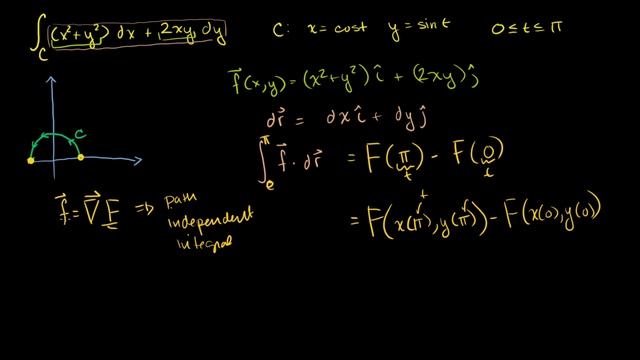 ∫_C (x² + y²) dx + 2xy dy    C: x = cos t   y = sin t   0 ≤ t ≤ π
f⃗(x,y) = (x² + y²) î + (2xy) ĵ
C
dr⃗ = dx î + dy ĵ
∫_0^π f⃗ · dr⃗ = F(π) − F(0)
t t
f⃗ = ∇⃗F ⇒ path
independent
integral
t
= F(x(π), y(π)) − F(x(0), y(0))